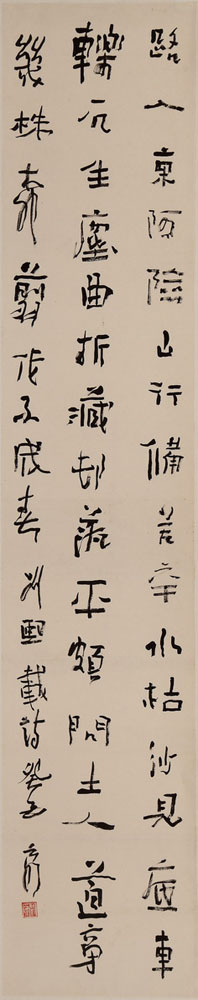 路入東阿險山行備苦辛水枯沙見底車
轢石生塵曲折藏邨落平頗問土人道旁
幾株奈翦伐不成春劉熙載詩癸丑